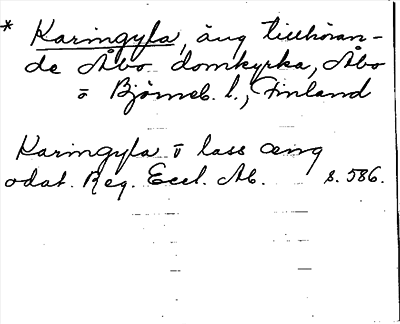 * Karingyla, äng tillhöran-
de Åbo domkyrka, Åbo
o Björneb. l., Finland
Karingyla v lass æng
odat. Reg. Eccl. Ab. s. 586.